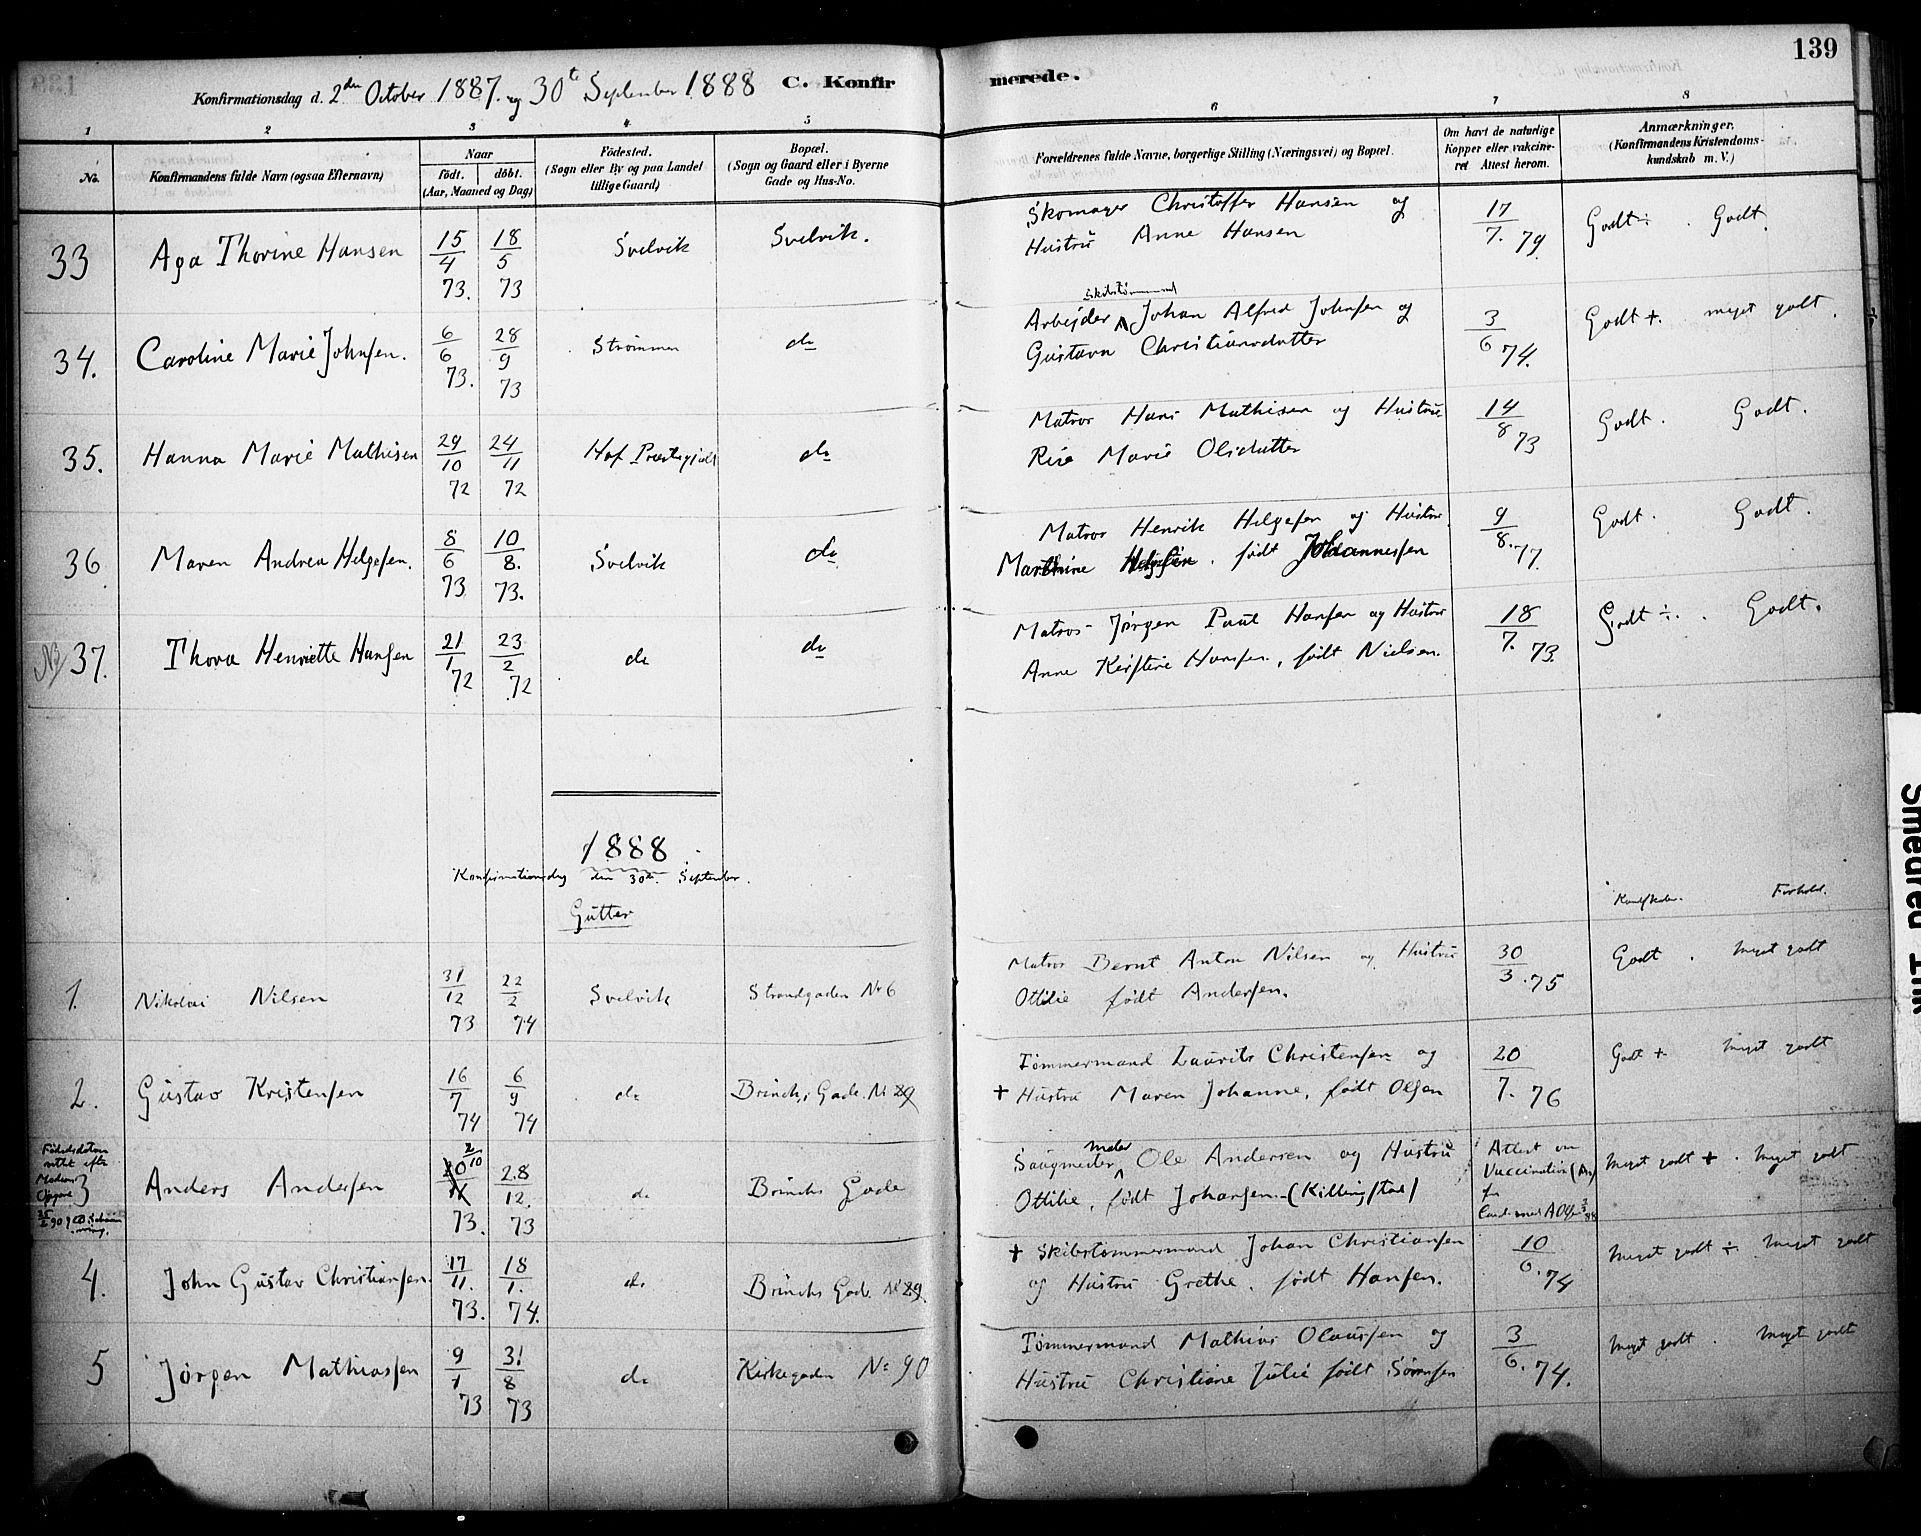 139
Konfirmationsdag d. 2den October 1887. og 30t September 1888 C. Konfirmerede.
1 2 3 4 5 6 7 8
No.
Konfirmandens fulde Navn (ogsaa Efternavn)
Naar
født. døbt.
(Aar, Maaned og Dag)
Födested.
(Sogn eller By og paa Landet tillige Gaard)
Bopæl.
(Sogn og Gaard eller i Byerne Gade og Hus-No.
Forældrenes fulde Navne, borgerlige Stilling (Næringsvei) og Bopæl.
Om havt de naturlige Kopper eller vakcineret Attest herom.
Anmærkninger.
(Konfirmandens Kristendomskundskab m. V.)
33 Aga Thorine Hansen 15/4 73. 18/5 73 Svelvik Svelvik. Skomager Christoffer Hansen og
Hustru Anne Hansen 17/7. 79. Godt ÷ . Godt.
34. Caroline Marie Johnsen. 6/6 73. 28/9 73 Strømmen do Arbeider Skibstømmermand Johan Alfred Johnsen og
Gustava Christiansdatter 3/6 74. Godt +. meget godt.
35. Hanna Marie Mathisen 29/10 72 24/11 72 Hof Præstegjeld do Matros Hans Mathisen og Hustru
Rise Marie Olsdatter 14/8 73 Godt. Godt.
36 Maren Andrea Helgesen. 8/6 73 10/8. 73. Svelvik do Matros Henrik Helgesen og Hustru
Marthine Helgesen. født Johannessen 9/8. 77. Godt. Godt.
NB 37. Thora Henriette Hansen 21/1 72 23/2 72 do do Matros Jørgen Paul Hansen og Hustru
Anne Kirstine Hansen, født Nielsen. 18/7. 73. Godt ÷. Godt.
1888
Konfirmationsdag den 30te September.
Gutter
Kundskaber. Forhold.
1. Nikolai Nilsen 31/12 73 22/2 74 Svelvik Strandgaden No 6 Matros Bernt Anton Nilsen og Hustru
Ottilie født Andersen. 30/3. 75 Godt. Meget godt
2. Gustav Kristensen 16/7 74 6/9 74 do Brinchs Gade. No 29 Tømmermand Laurits Christensen og
+ Hustru Maren Johanne, født Olsen 20/7. 76 Godt + Meget godt
Fødselsdatum rettet efter Moderens Opgave
3 Anders Andersen 2/10 73. 28/12. 73 do Brinchs Gade Saugmester Ole Andersen og Hustru
Ottilie, født Johansen (Killingstad) Attest om Vaccination Meget godt + . Meget godt
4. John Gustav Christiansen. 17/11. 73. 18/1. 74. do Brinchs Gade. No 29. + Skibstømmermand Johan Christiansen
og Hustru Grethe, født Hansen. 10/6. 74 Meget godt ÷ Meget godt
5 Jørgen Mathiassen 9/1 73 31/8 73 do Kirkegaden No 90 Tømmermand Mathias Olaussen og
Hustru Christiane Julie født Sørensen 3/6. 74. Meget godt. Meget godt
Smedrud Ink